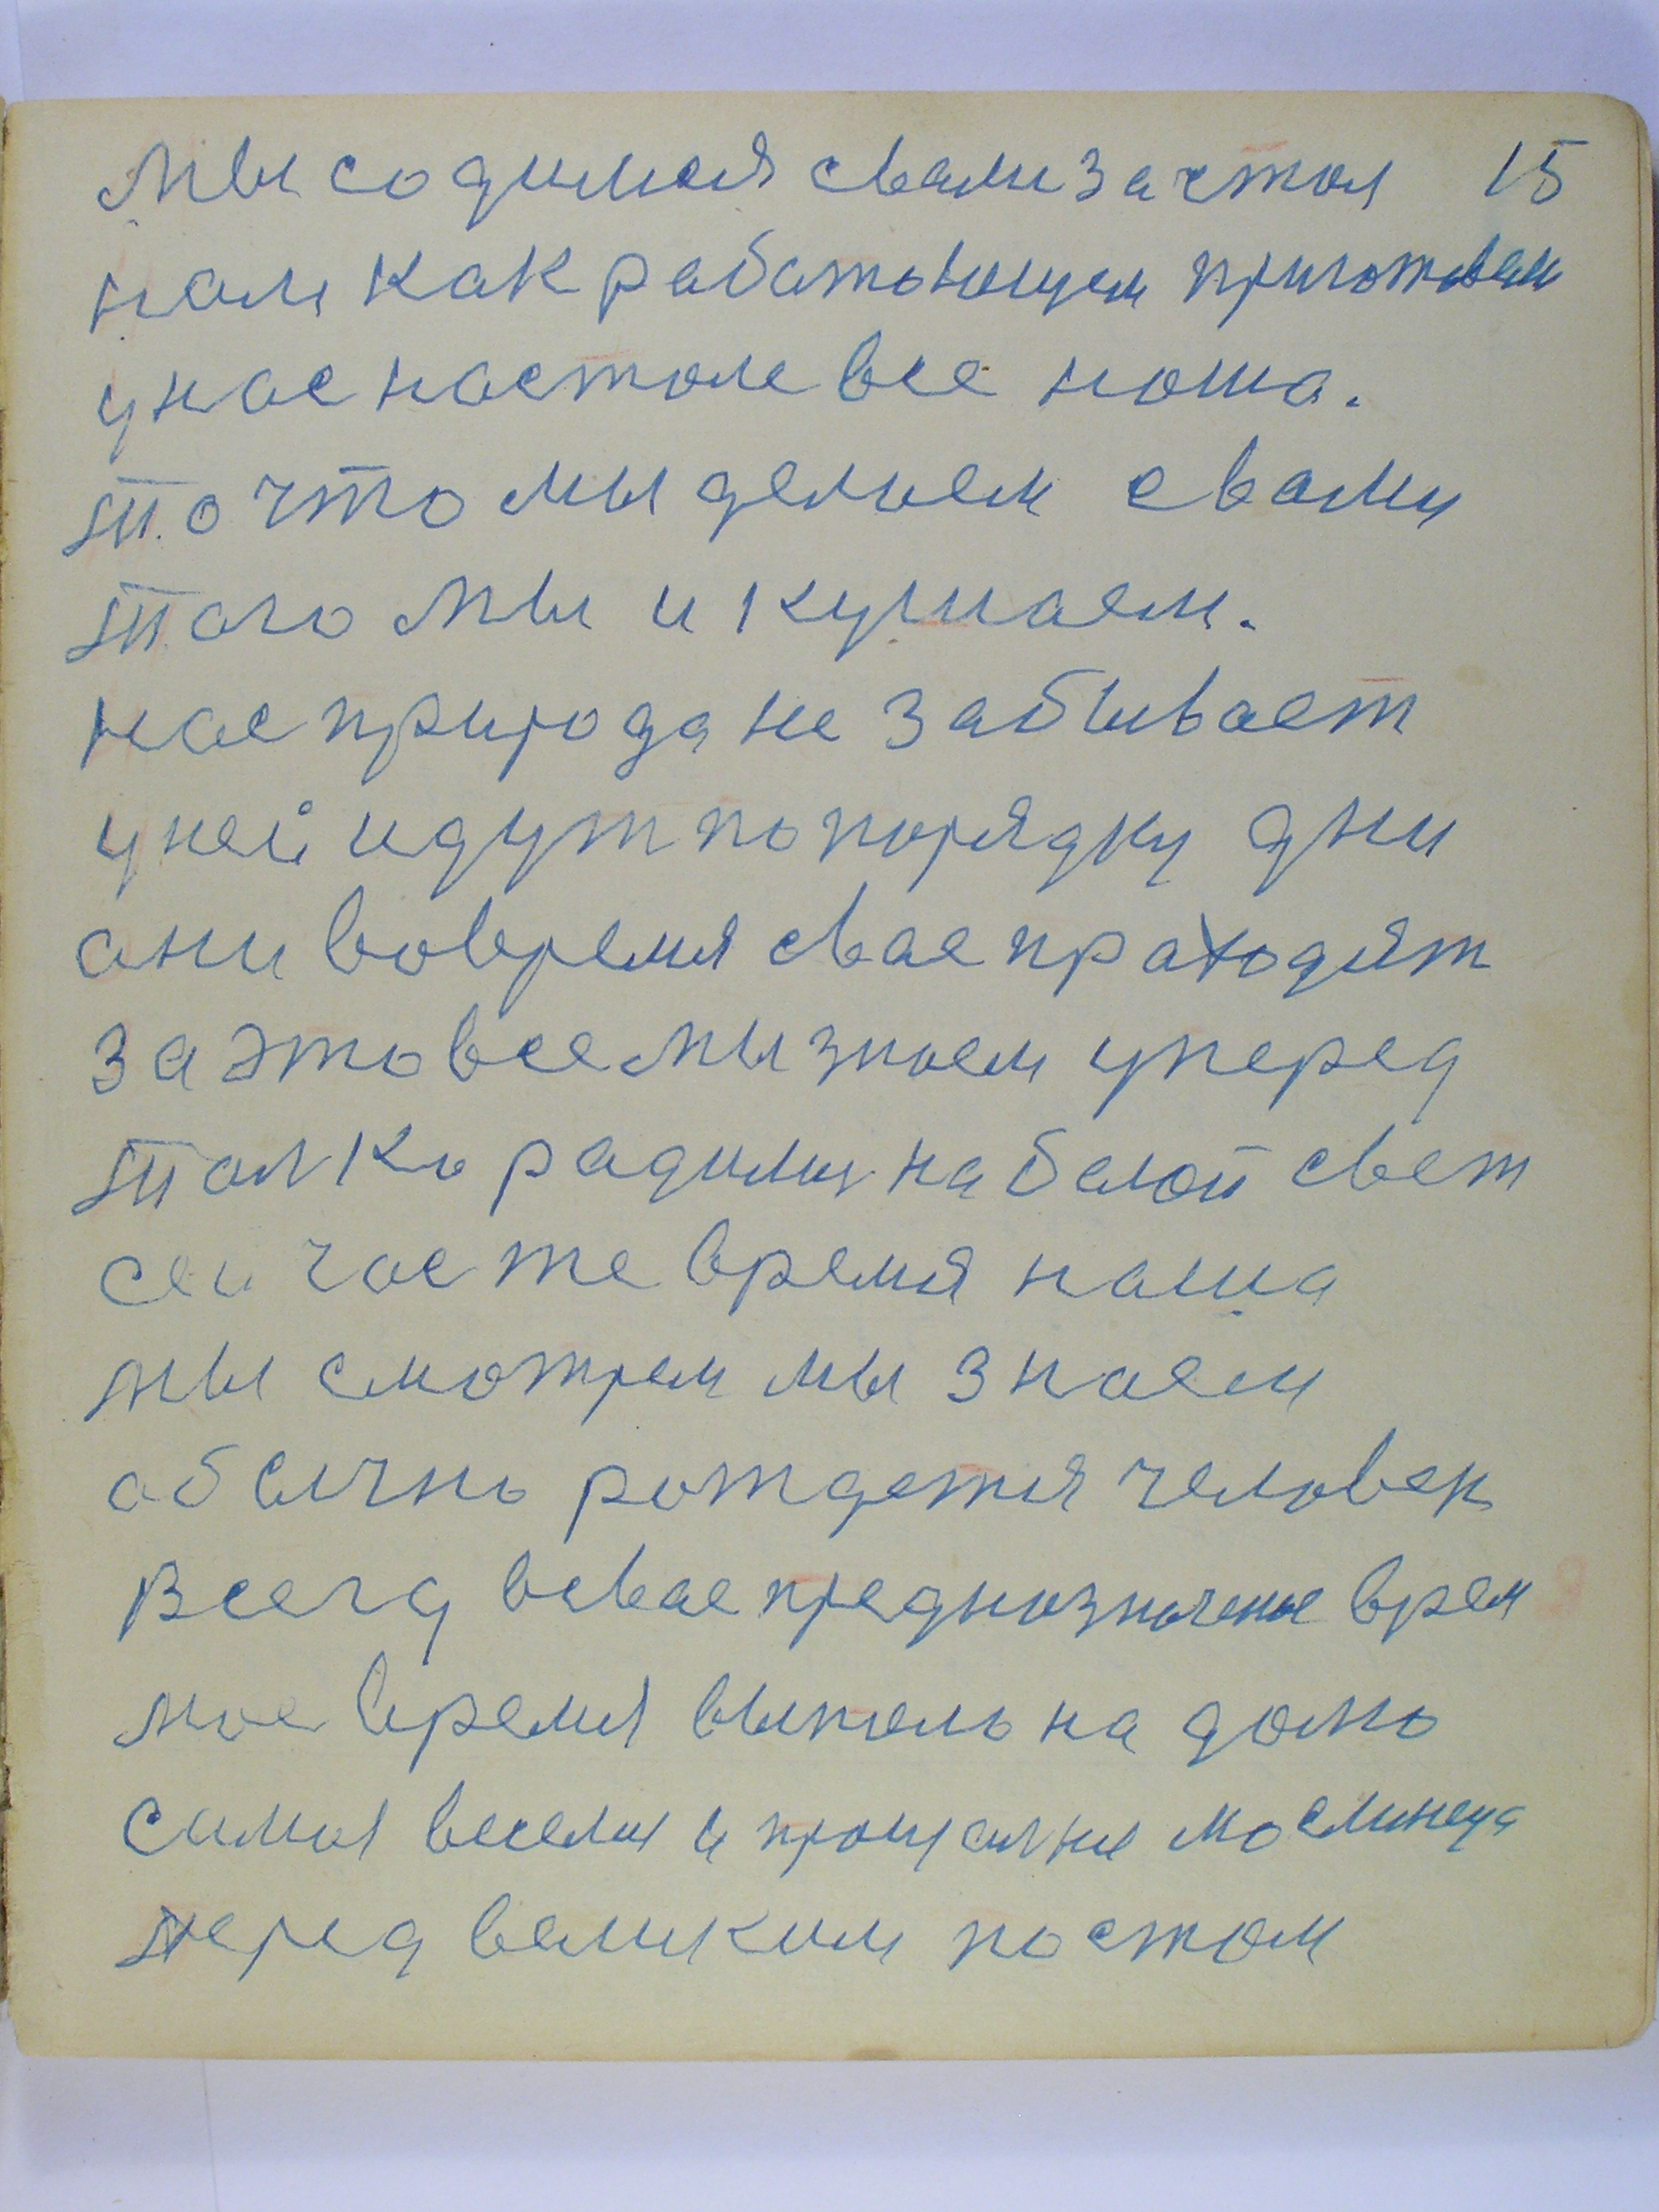 мы содимся свами за стол 15
нам как работающем приготовлен
унас настоле все наша.
То что мы делаем свами
Того мы и кушаем.
нас природа не забывает
у ней идут по порядку дни
они вовремя свае праходят
за это все мы знаем уперед
Толко радилис на белой свет
сей час те время наша
мы смотрем мы знаем
обычно рождется человек
Всегд всвае предназначеное врем
мое время выпало на долю
самая весела и прощалние маслинеца
перед великим постом